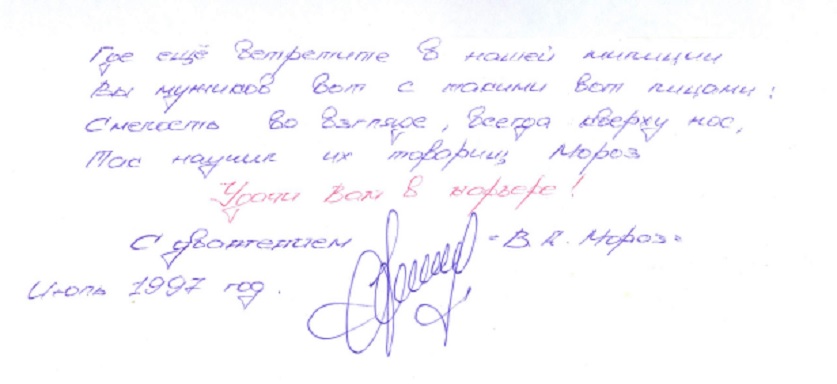 Где ещё встретите в нашей милиции
Вы мужиков вот с такими вот лицами:
Смелость во взгляде, всегда кверху нос,
Так научил их товарищ Мороз
Удачи Вам в карьере!
С уважением "В. А. Мороз"
Июль 1997 год.